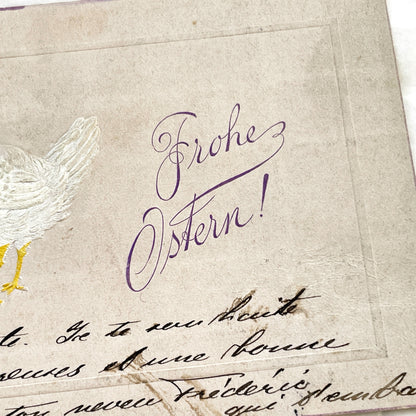 Frohe
Ostern!
te. Je te souhaite
reuses et une bonne
ton neveu Frédéric
qui t'embra